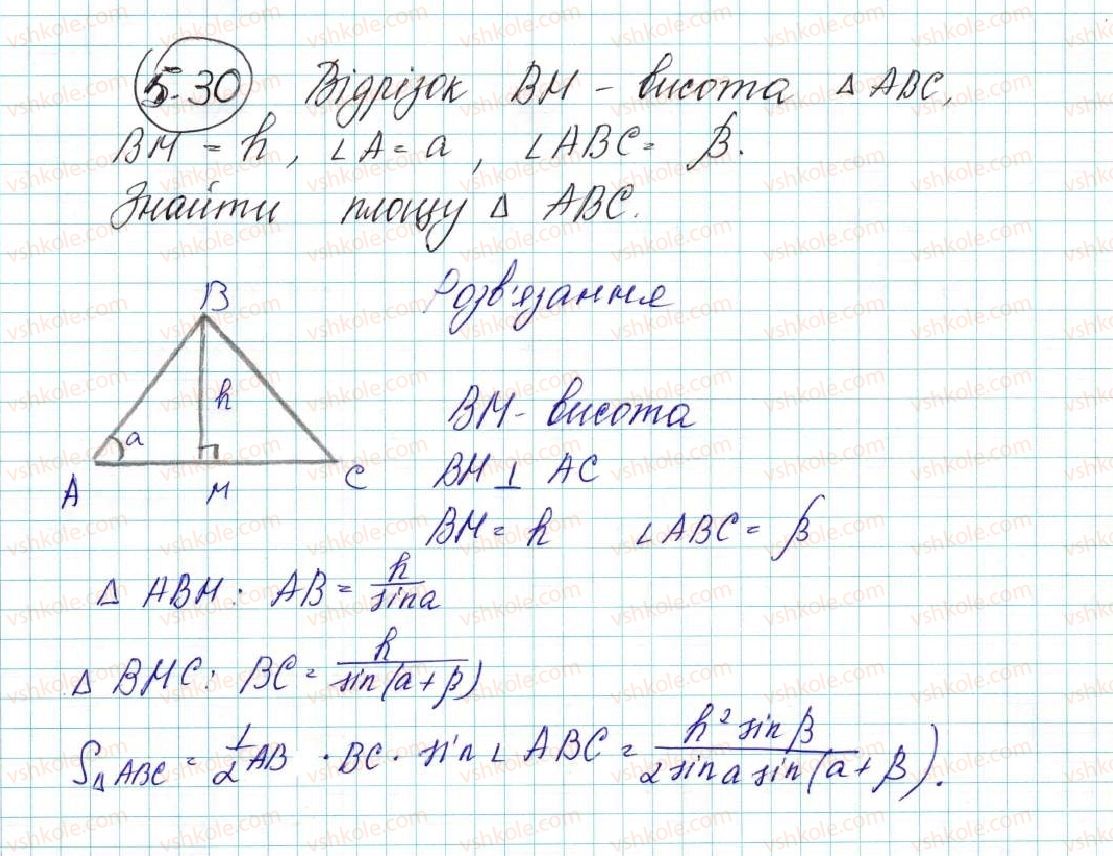 5.30 Відрізок BM - висота △ ABC,
BM = h, ∠A = a, ∠ABC = β.
Знайти площу △ ABC.
Розв'язання
B
h
a
A
M
C
BM - висота
BM ⊥ AC
BM = h ∠ABC = β
△ ABM: AB = h/sin a
△ BMC: BC = h/sin(a+β)
S△ABC = 1/2 AB · BC · sin∠ABC = h² sin β/2 sin a sin(a+β).
vshkole.com